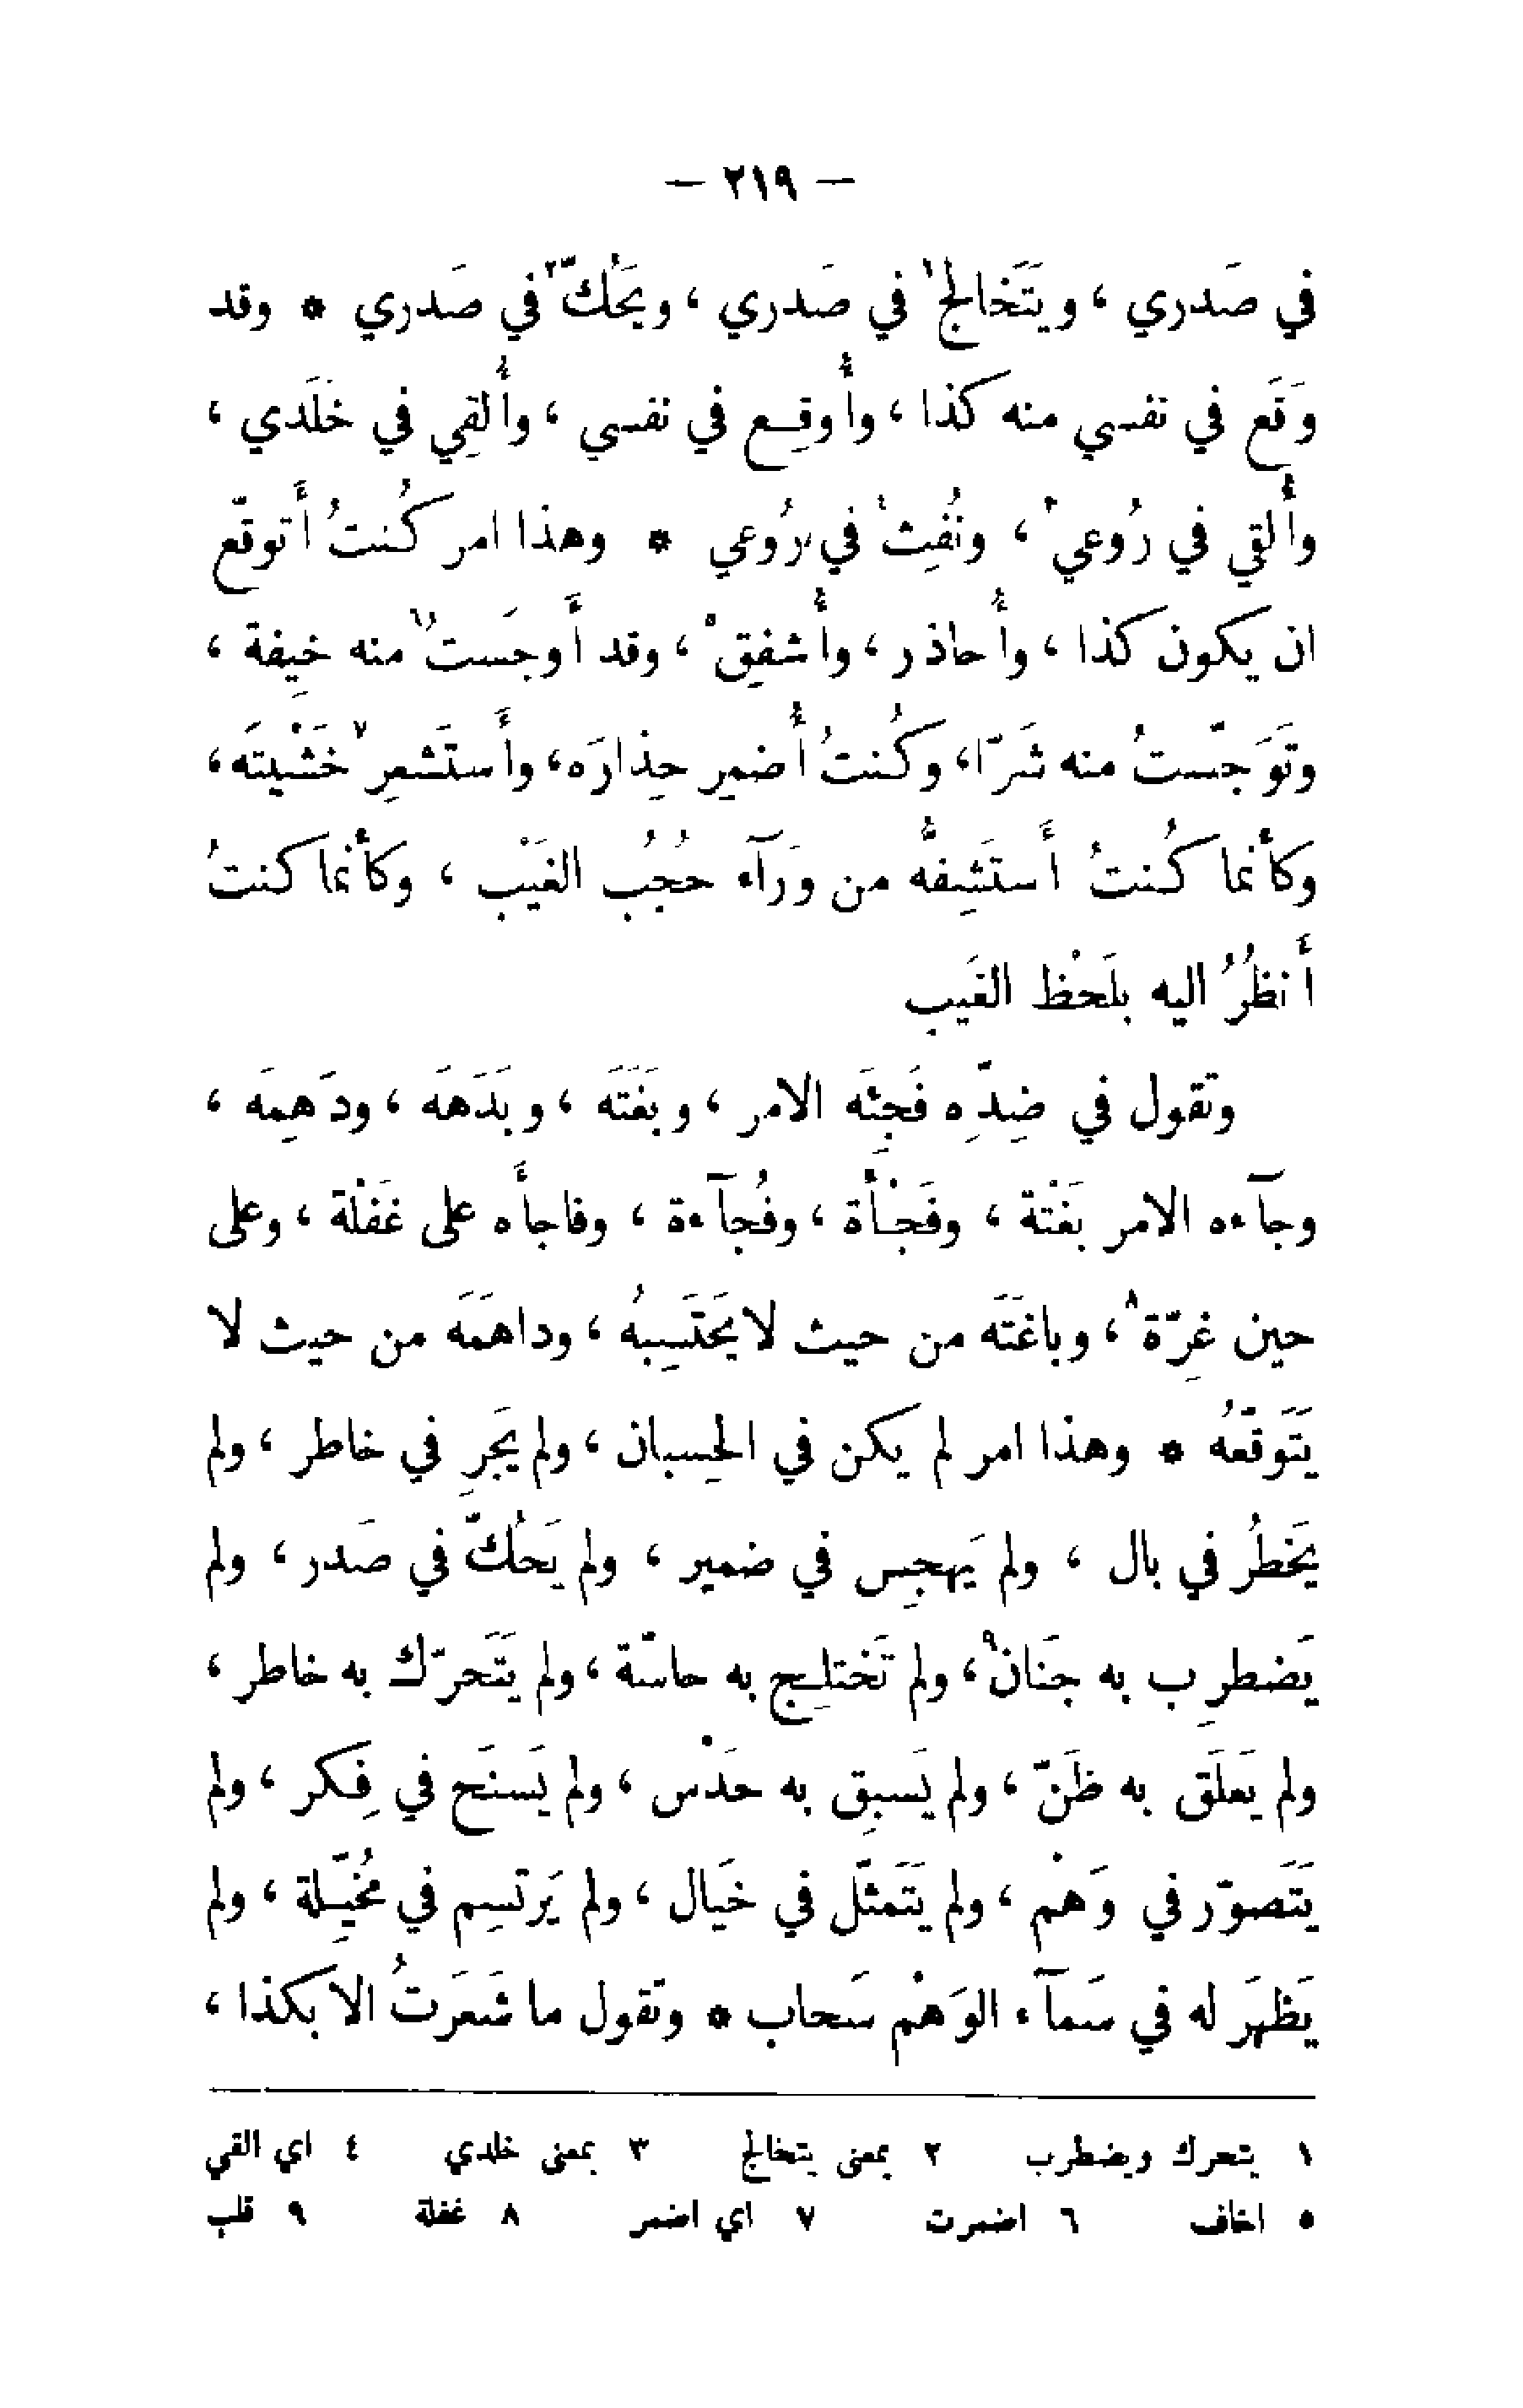 — ٢١٩ —
في صَدري ، ويَتَخالج١ في صَدري ، ويَحُكّ٢ في صَدري * وقد
وَقَع في نفسي منه كذا ، وأُوقِع في نفسي ، وأُلقِي في خَلَدي ،
وأُلقي في رُوعي٣ ، ونُفِث٤ في رُوعي * وهذا امر كُنتُ أَتوقّع
ان يكون كذا ، وأُحاذر ، وأُشفِق٥ ، وقد أَوجَست٦ منه خِيفة ،
وتَوَجّستُ منه شَرّا ، وكُنتُ أُضمِر حِذارَه ، وأَستَشعِر٧ خَشْيتَه ،
وكأنما كُنتُ أَستَشِفهُّ من وَرآء حُجُب الغَيْب ، وكأنما كنتُ
أَنظُرُ اليه بلَحْظ الغَيب
وتقول في ضِدّهِ فَجِئَه الامر ، وبَغَتَه ، وبَدَهَه ، ودَهِمَه ،
وجآءه الامر بَغْتة ، وفَجْأة ، وفُجآءة ، وفاجأَه على غَفْلة ، وعلى
حين غِرّة٨ ، وباغَتَه من حيث لا يَحَتَسِبهُ ، وداهَمَه من حيث لا
يَتَوقّعهُ * وهذا امر لم يكن في الحِسبان ، ولم يَجرِ في خاطر ، ولم
يَخطُر في بال ، ولم يَهجِس في ضمير ، ولم يَحُكّ في صَدر ، ولم
يَضطرِب به جَنان٩ ، ولم تَختلِج به حاسّة ، ولم يَتَحرّك به خاطر ،
ولم يَعلَق به ظَنّ ، ولم يَسبِق به حَدْس ، ولم يَسنَح في فِكر ، ولم
يَتَصوّر في وَهْم ، ولم يَتَمثّل في خَيال ، ولم يَرتسِم في مُخيِّلة ، ولم
يَظهَر له في سَمآء الوَهْم سَحاب * وتقول ما شَعَرَتُ الا بكذا ،
١ يتحرك ويضطرب ٢ بمعنى يتخالج ٣ بمعنى خلدي ٤ اي القي
٥ اخاف ٦ اضمرت ٧ اي اضمر ٨ غفلة ٩ قلب